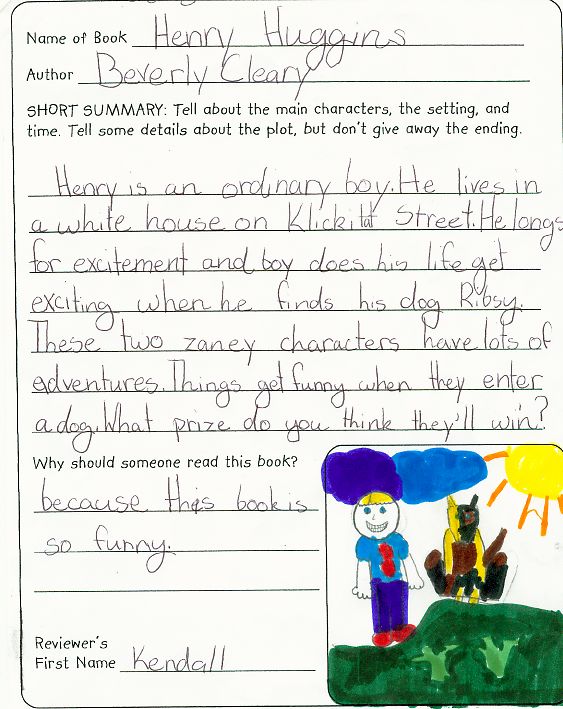 Name of Book Henry Huggins
Author Beverly Cleary
SHORT SUMMARY: Tell about the main characters, the setting, and
time. Tell some details about the plot, but don't give away the ending.
Henry is an ordinary boy. He lives in
a white house on Klickitat Street. He longs
for excitement and boy does his life get
exciting when he finds his dog Ribsy.
These two zaney characters have lots of
adventures. Things get funny when they enter
a dog. What prize do you think they'll win?
Why should someone read this book?
because this book is
so funny.
Reviewer's
First Name Kendall